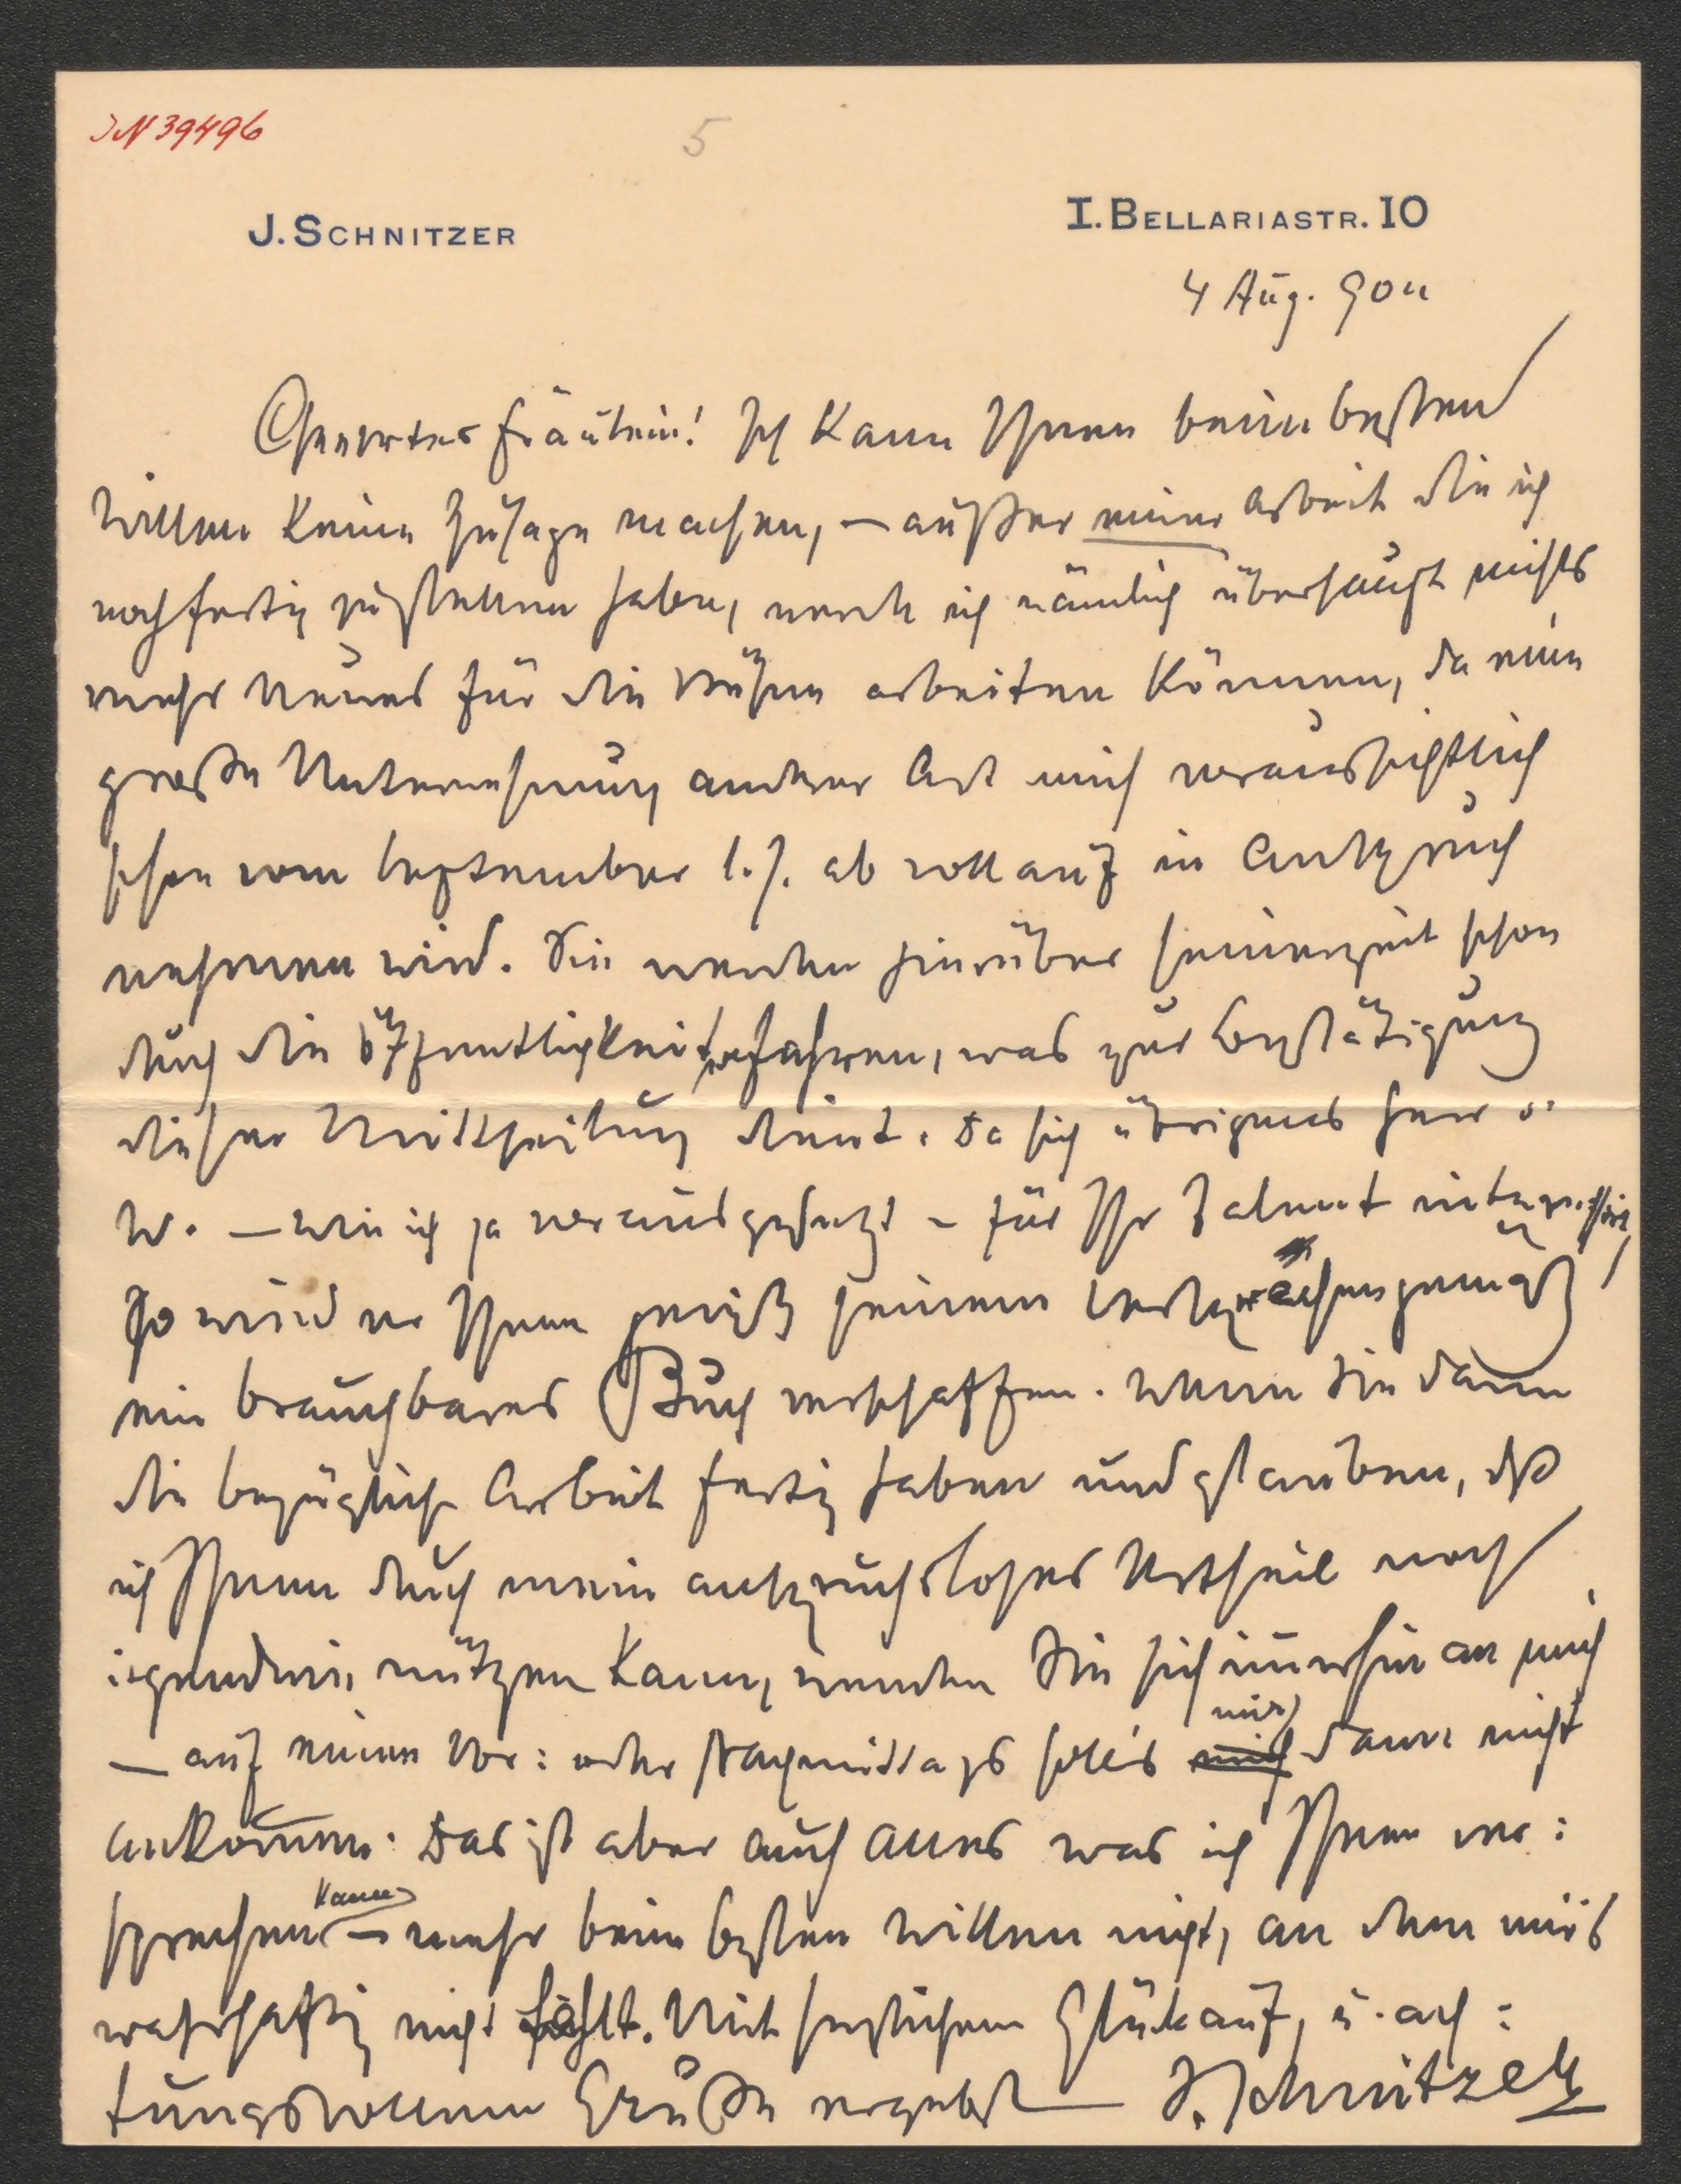 JN 39496
5
J. SCHNITZER
I. BELLARIASTR. 10
4 Aug. 900
Geehrtes Fräulein! Ich kann Ihnen beim besten
Willen keine Zusage machen, – außer einer Arbeit die ich
noch fertig zu stellen habe, werde ich nämlich überhaupt nichts
mehr Neues für die Bühne arbeiten können, da eine
große Unternehmung anderer Art mich voraussichtlich
schon vom September l. J. ab vollauf in Anspruch
nehmen wird. Sie werden hierüber seinerzeit schon
durch die Öffentlichkeit erfahren, was zur Bestätigung
dieser Mittheilung dient. Da sich übrigens Herr v.
W. – wie ich ja vorausgesetzt – für Ihr Talent interessirt,
so wird er Ihnen gewiß seinem Versprechen gemäß
ein brauchbares Buch verschaffen. Wenn Sie dann
die bezügliche Arbeit fertig haben und glauben, daß
ich Ihnen durch mein anspruchsloses Urtheil noch
irgendwie nützen kann, wenden Sie sich immerhin an mich
– auf einen Vor: oder Nachmittags soll's mich mir dann nicht
ankommen. Das ist aber auch Alles was ich Ihnen ver:
sprechen kann – mehr beim besten Willen nicht, an dem mir's
wahrhaftig nicht fehlt. Mit herzlichem Glückauf, u. ach:
tungsvollem Gruße ergebenst J. Schnitzer